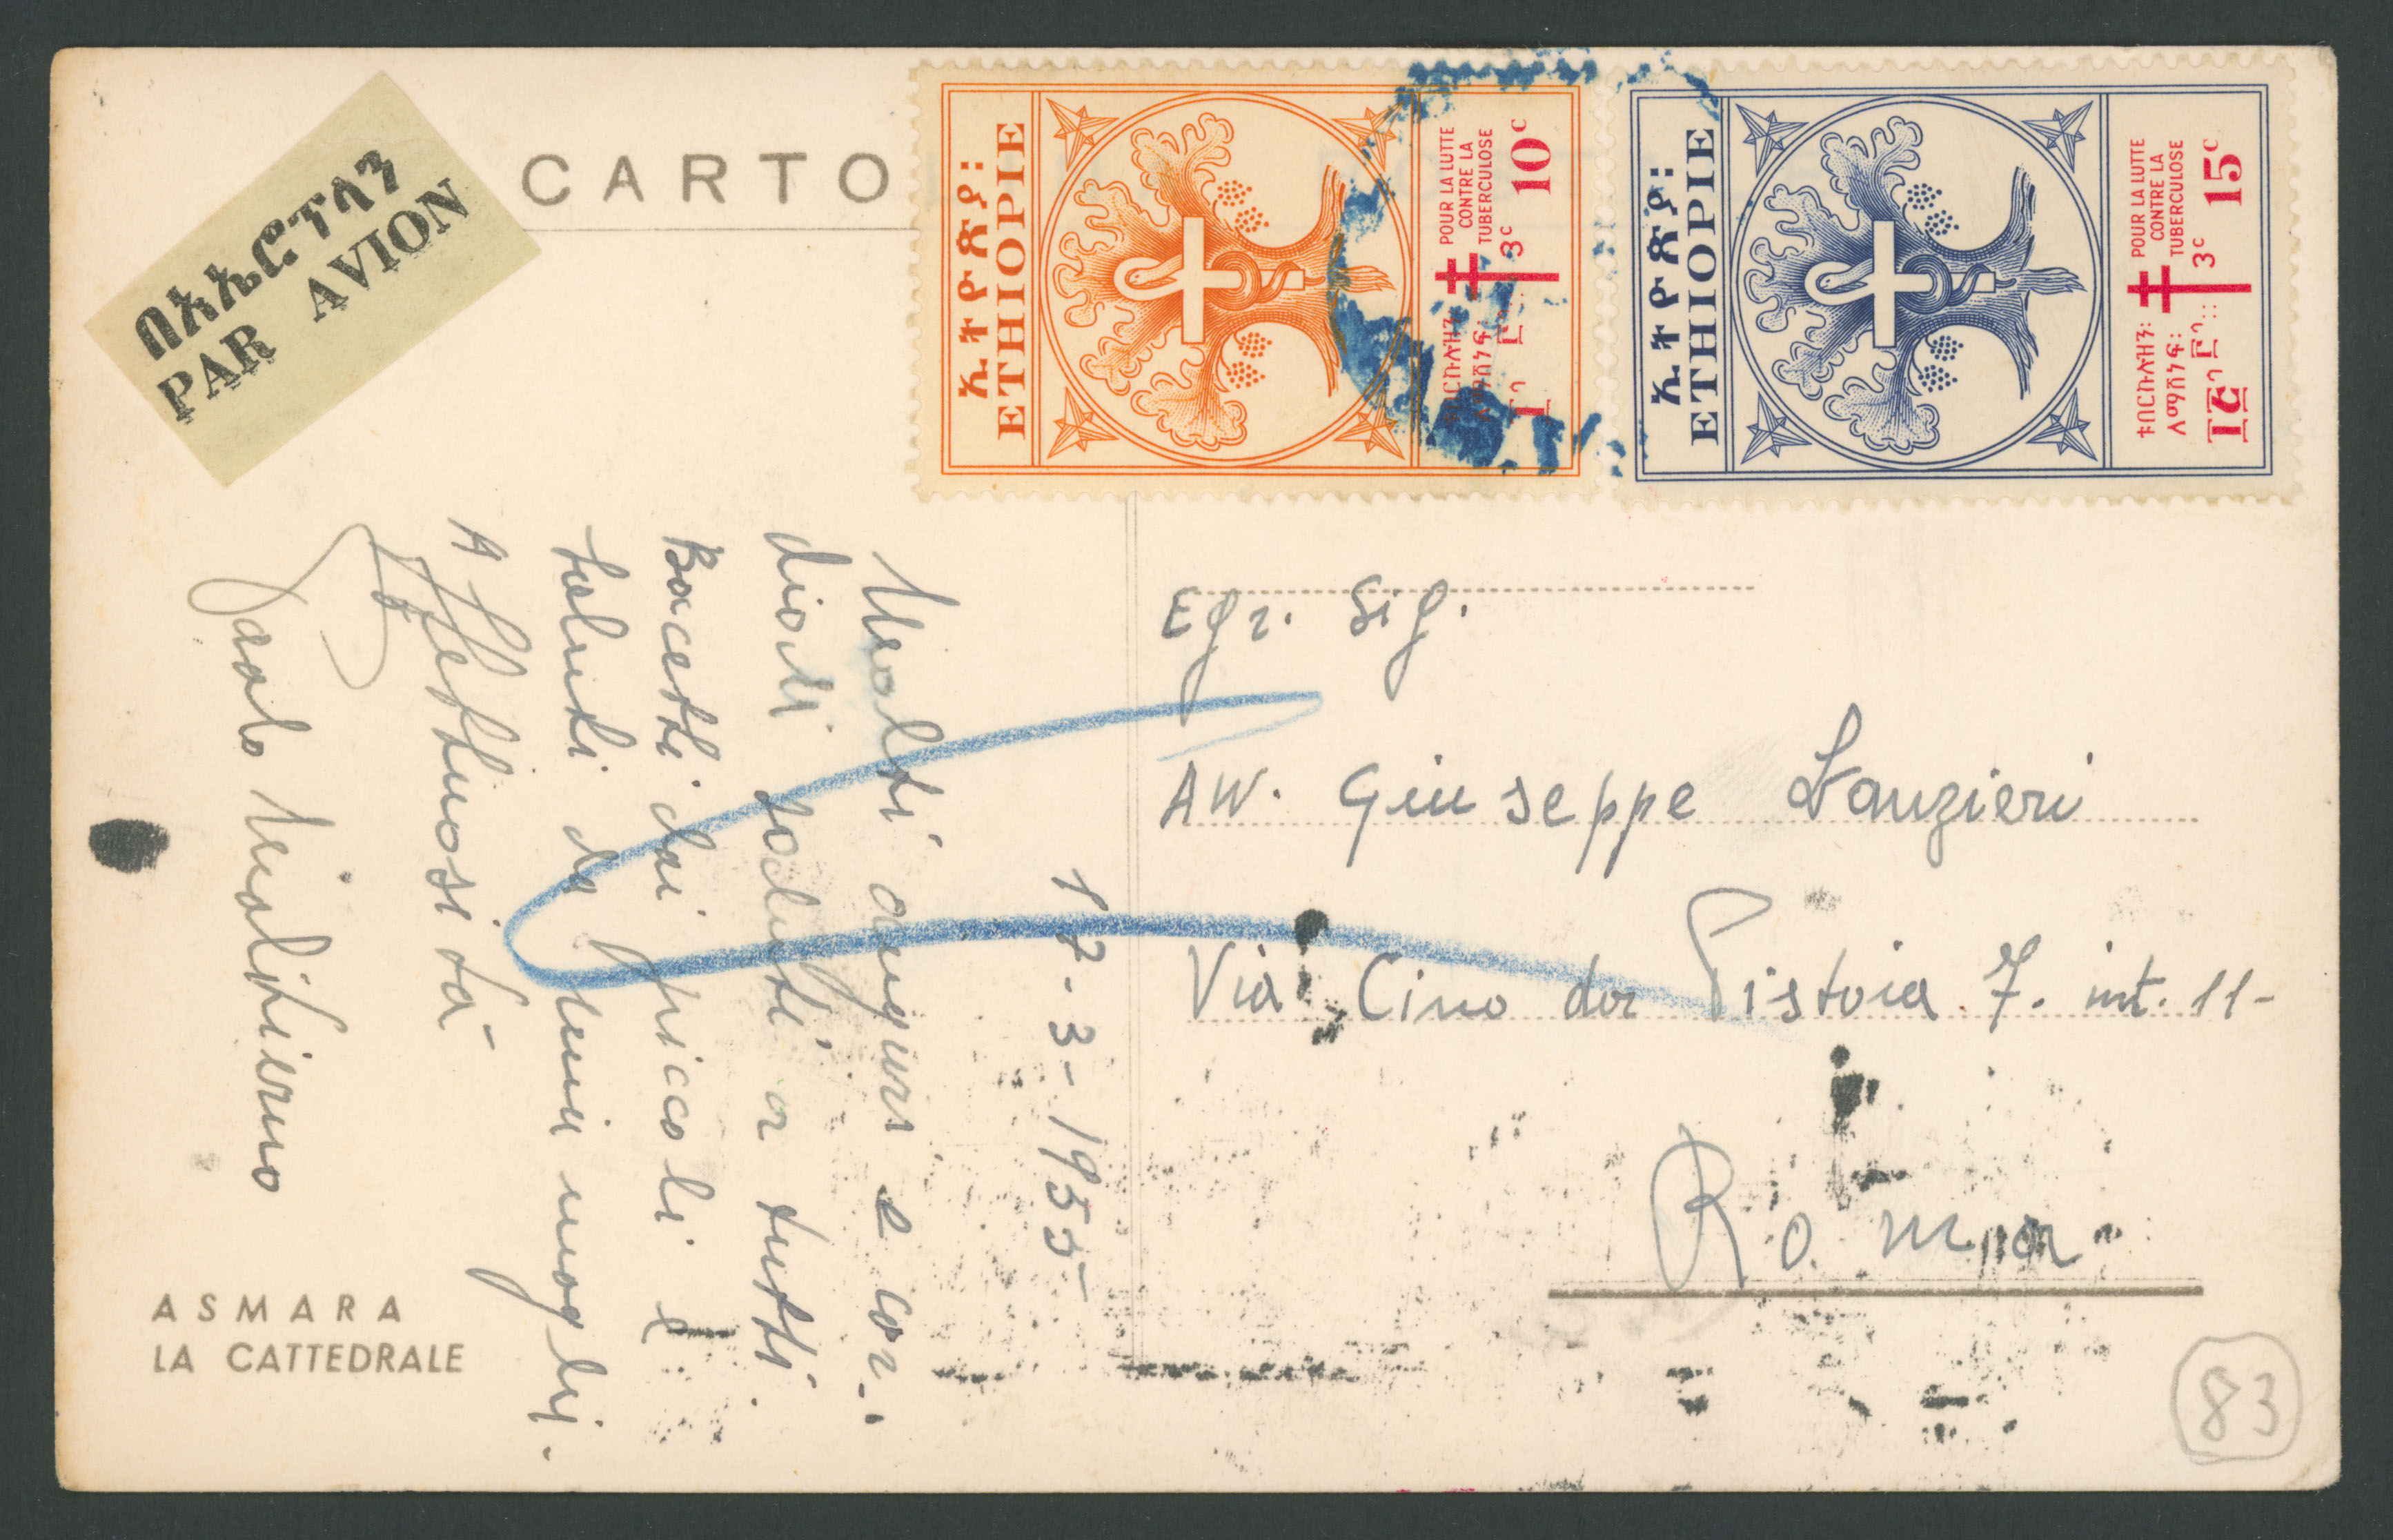 CARTO
በአኤሮፕላን
PAR AVION
ኢትዮጵያ፡
ETHIOPIE
POUR LA LUTTE
CONTRE LA
TUBERCULOSE
3c 10c
ኢትዮጵያ፡
ETHIOPIE
POUR LA LUTTE
CONTRE LA
TUBERCULOSE
3c 15c
17-3-1955-
Molti auguri e cor-
diali saluti a tutti.
Bacetti dai piccoli e
saluti da mia moglie.
Affettuosità
Egr. Sig.
AVV. Giuseppe Lanzieri
Via Cino da Pistoia 7. int. 11-
Roma
ASMARA
LA CATTEDRALE
83